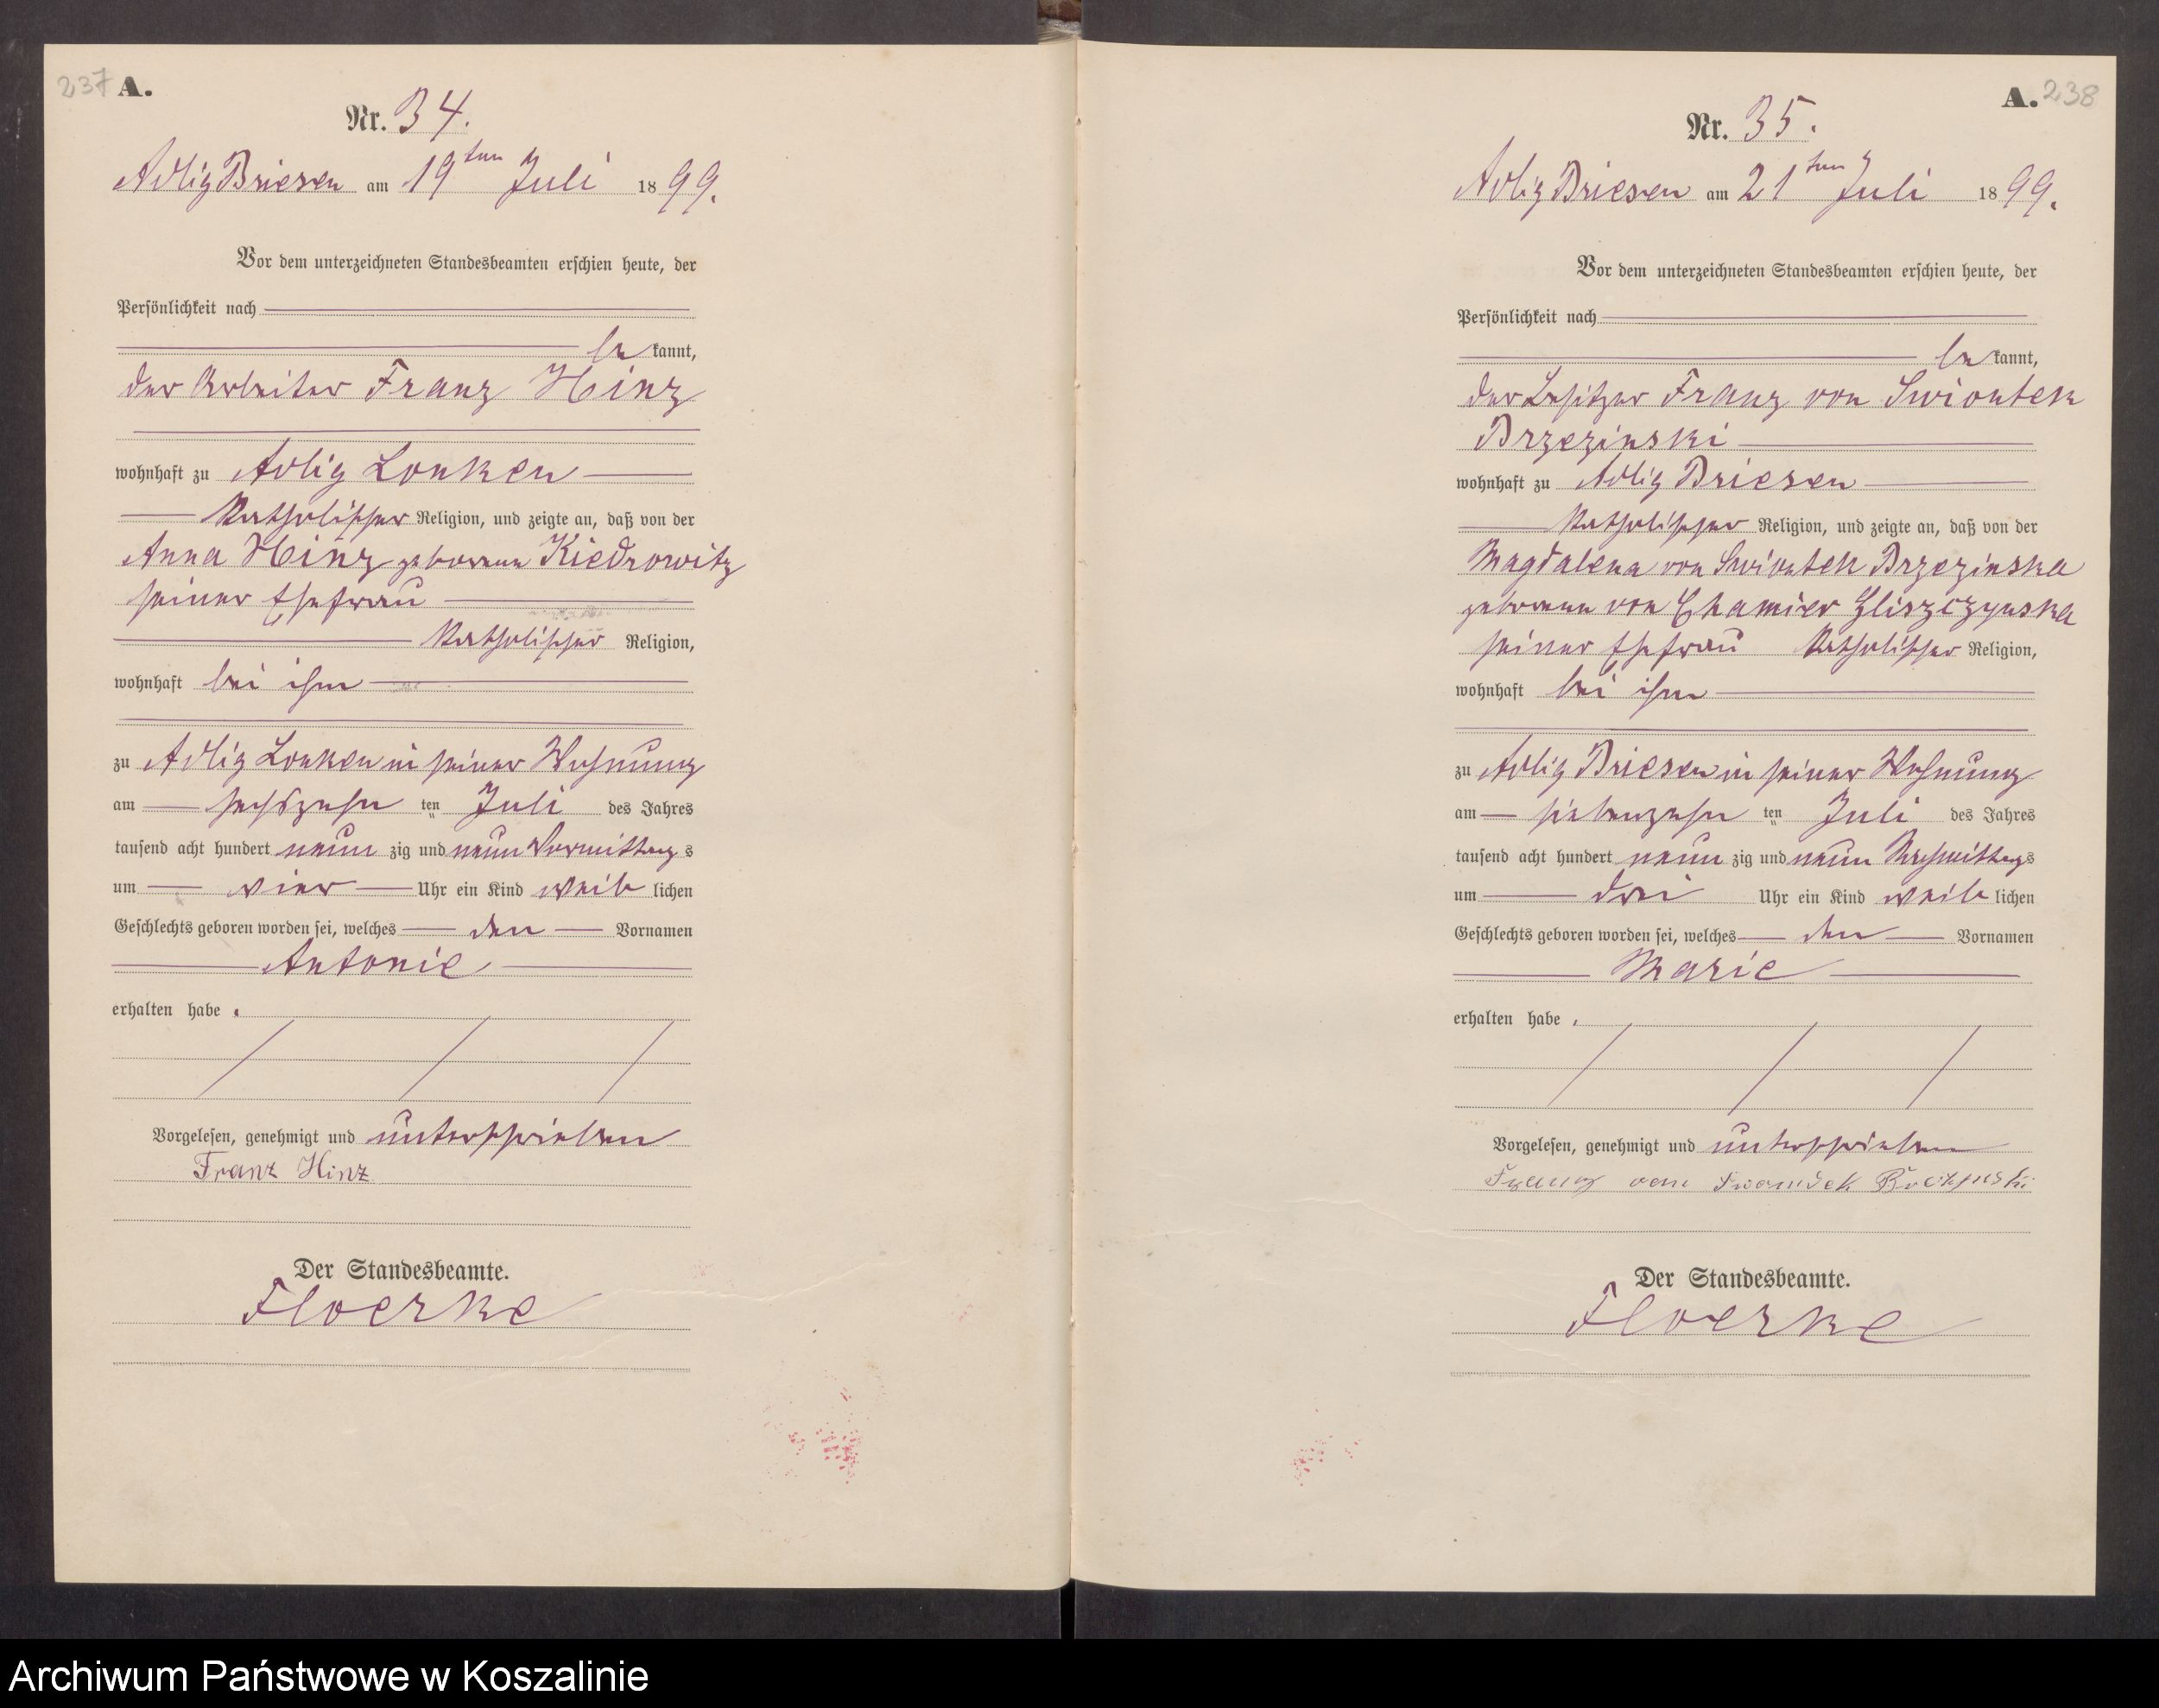 237 A.
Nr. 34.
Adlig Briesen am 19ten Juli 1899.
Vor dem unterzeichneten Standesbeamten erschien heute, der
Persönlichkeit nach
be kannt,
der Arbeiter Franz Hinz
wohnhaft zu Adlig Lonken
katholischer Religion, und zeigte an, daß von der
Anna Hinz geborenen Kiedrowitz
seiner Ehefrau
katholischer Religion,
wohnhaft bei ihm
zu Adlig Lonken in seiner Wohnung
am sechszehn ten Juli des Jahres
tausend acht hundert neun zig und neun Vormittag s
um vier Uhr ein Kind weib lichen
Geschlechts geboren worden sei, welches den Vornamen
Antonie
erhalten habe.
Vorgelesen, genehmigt und unterschrieben
Franz Hinz
Der Standesbeamte.
Floerke
A. 238
Nr. 35.
Adlig Briesen am 21ten Juli 1899.
Vor dem unterzeichneten Standesbeamten erschien heute, der
Persönlichkeit nach
be kannt,
der Besitzer Franz von Swiontek
Brzezinski
wohnhaft zu Adlig Briesen
katholischer Religion, und zeigte an, daß von der
Magdalena von Swiontek Brzezinska
geborenen von Chamier Gliszczynska
seiner Ehefrau katholischer Religion,
wohnhaft bei ihm
zu Adlig Briesen in seiner Wohnung
am siebenzehn ten Juli des Jahres
tausend acht hundert neun zig und neun Nachmittags
um drei Uhr ein Kind weib lichen
Geschlechts geboren worden sei, welches den Vornamen
Marie
erhalten habe.
Vorgelesen, genehmigt und unterschrieben
Franz von
Der Standesbeamte.
Floerke
Archiwum Państwowe w Koszalinie